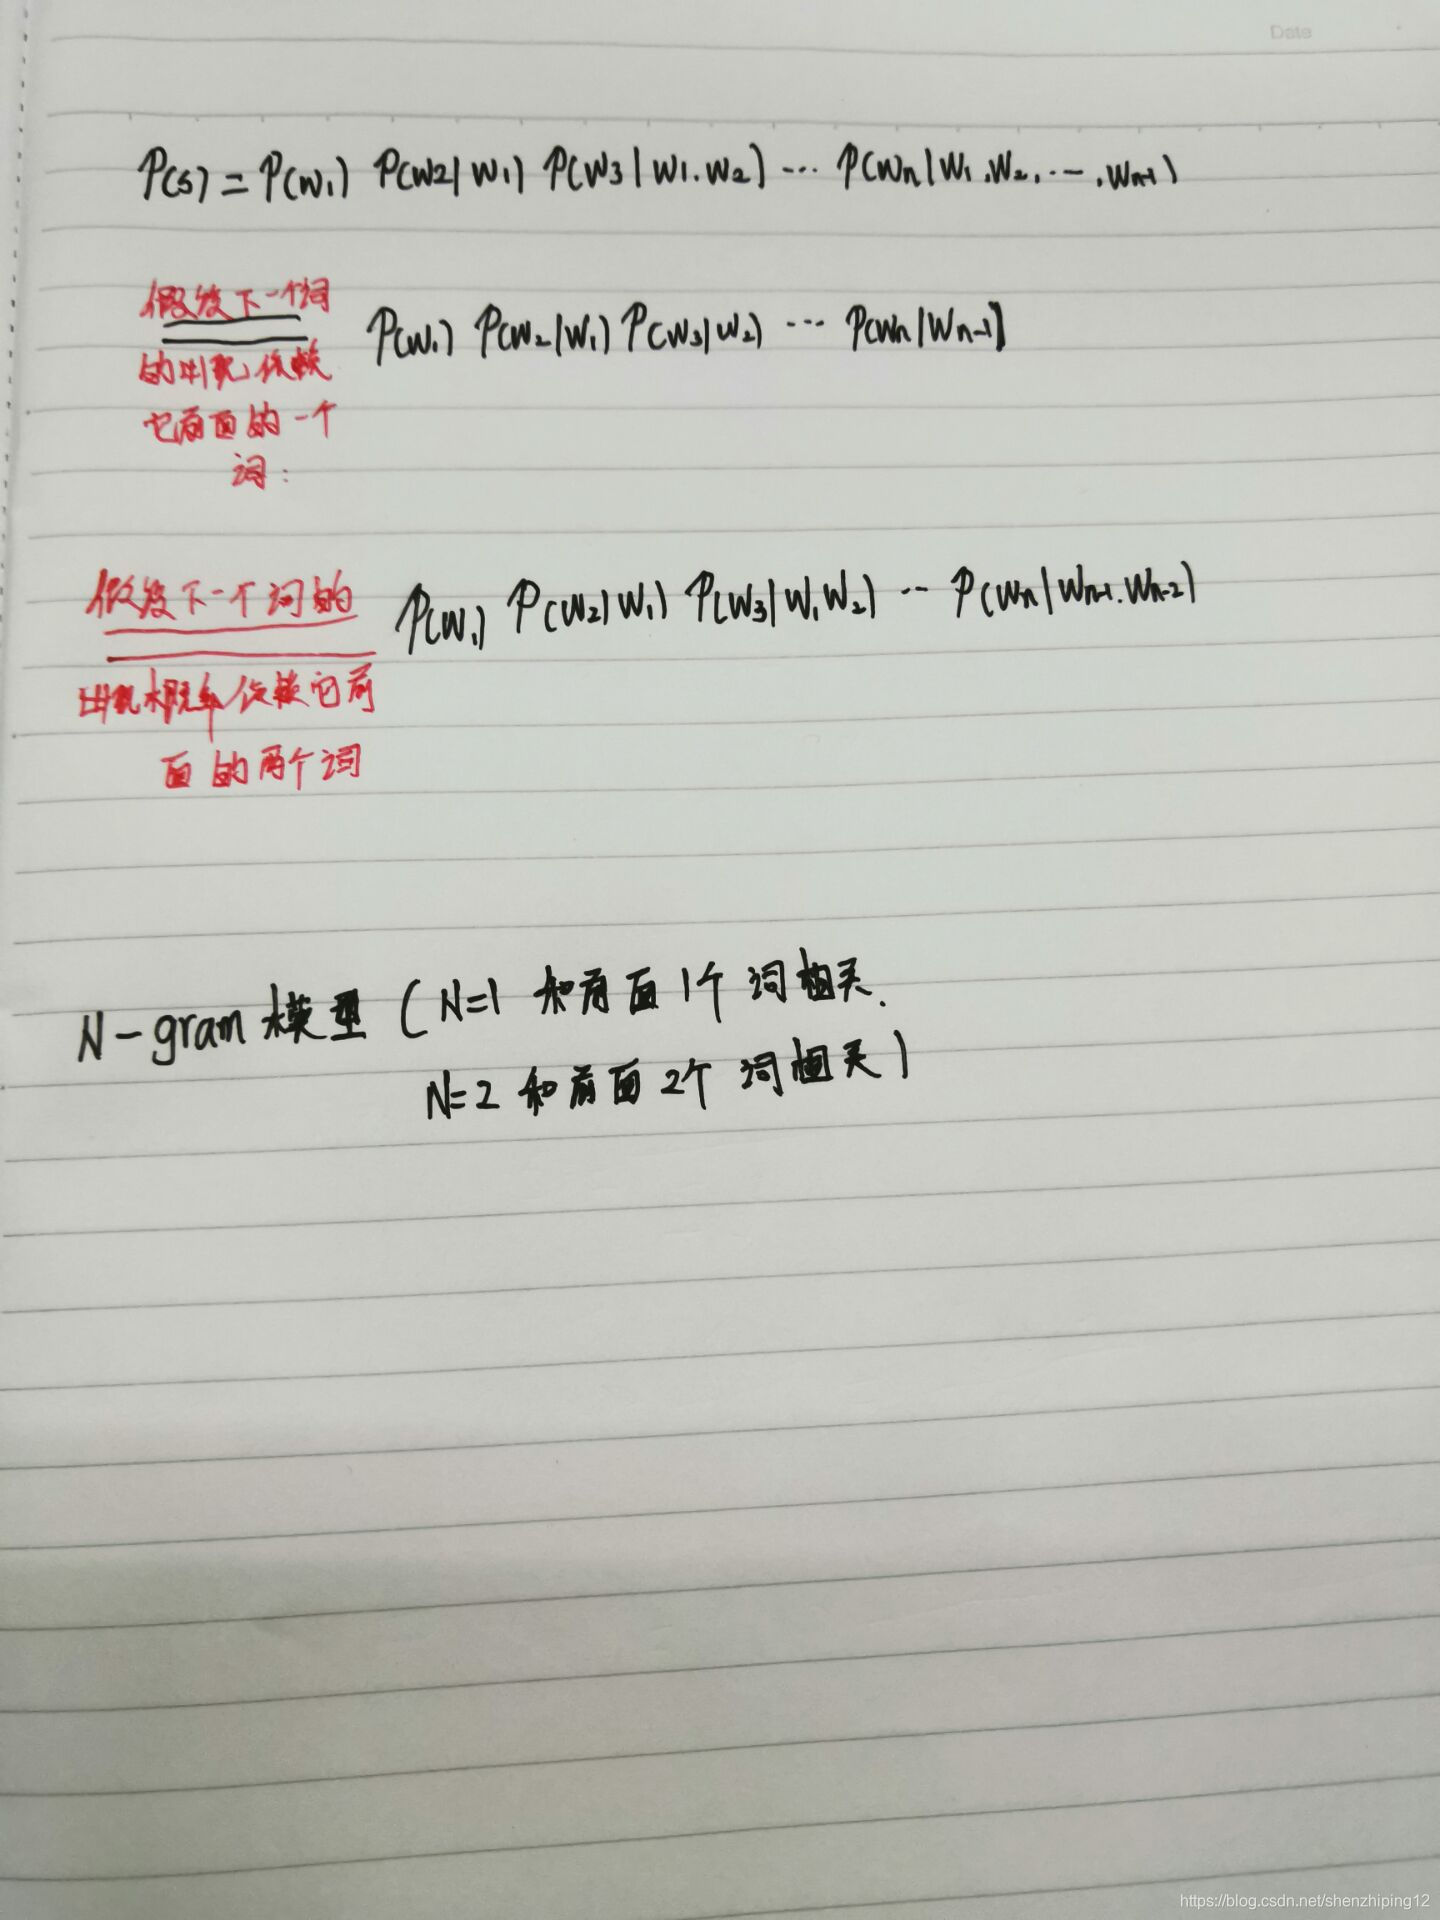 Date
P(s) = P(w1) P(w2|w1) P(w3|w1.w2) ... P(wn|w1.w2. ... .wn-1)
假设下一个词
的出现依赖
它前面的一个
词:
P(w1) P(w2|w1) P(w3|w2) ... P(wn|wn-1)
假设下一个词的
出现概率依赖它前
面的两个词
P(w1) P(w2|w1) P(w3|w1w2) .. P(wn|wn-1.wn-2)
N-gram 模型 ( N=1 和前面1个词相关.
N=2 和前面2个词相关)
https://blog.csdn.net/shenzhiping12